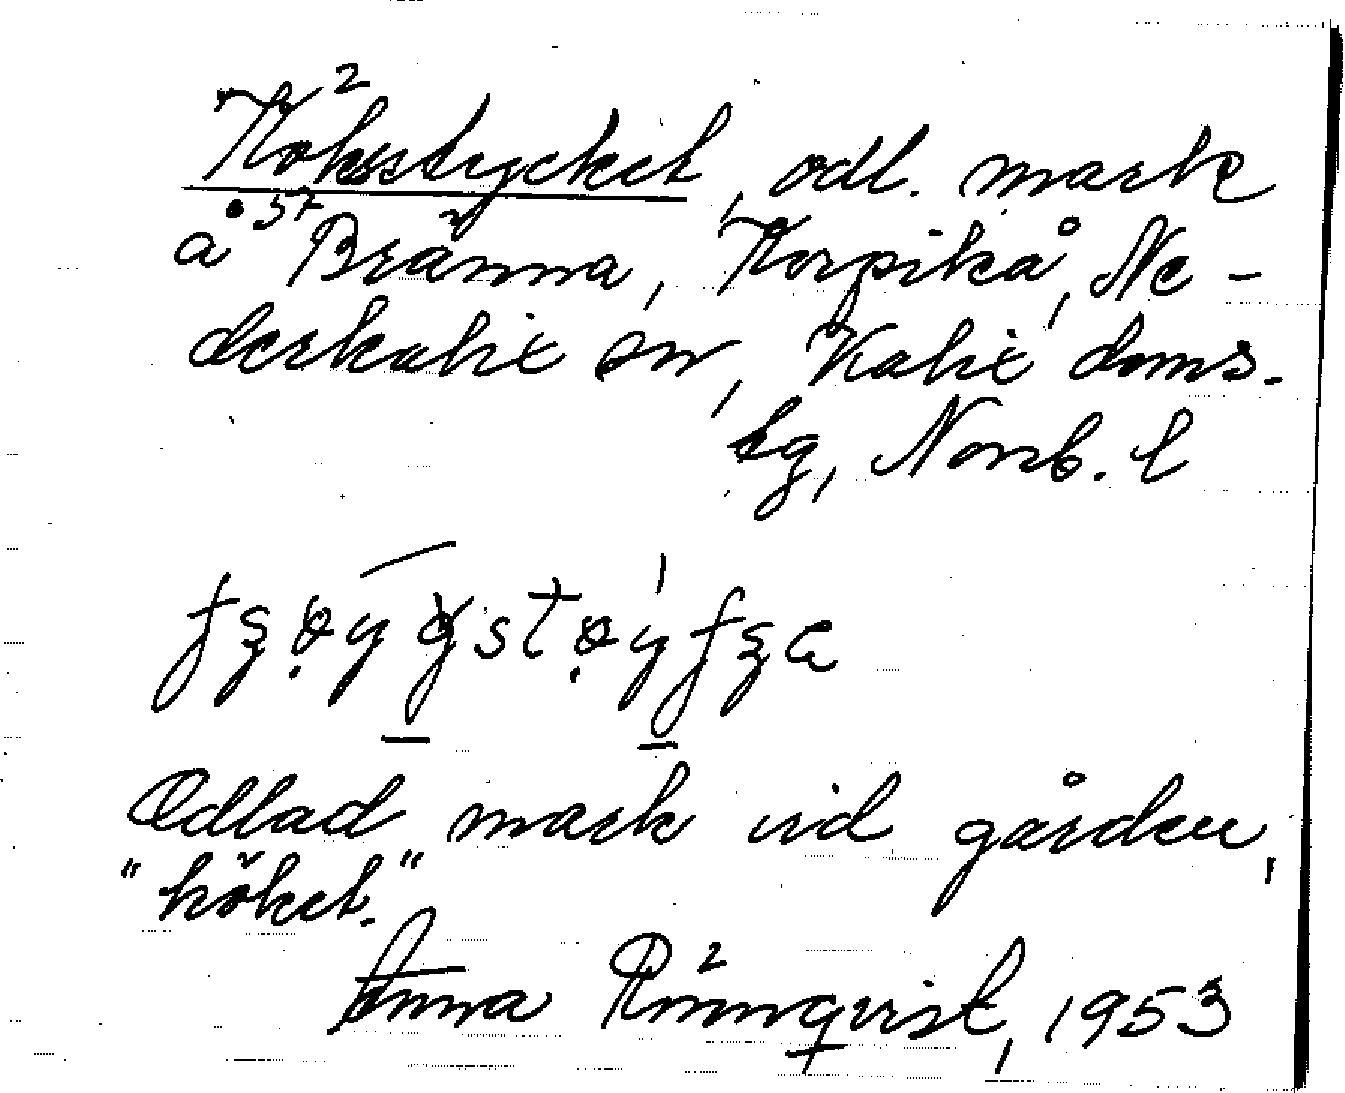 Köksstycket, odl. mark
å 57 Bränna, Korpikå, Ne-
derkalix sn, Kalix doms.
sg, Norrb. l
Odlad mark vid gården,
"köket."
Anna Rönnqvist, 1953